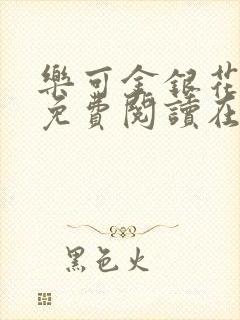 樂可金銀花
免費閱讀在
黑色火